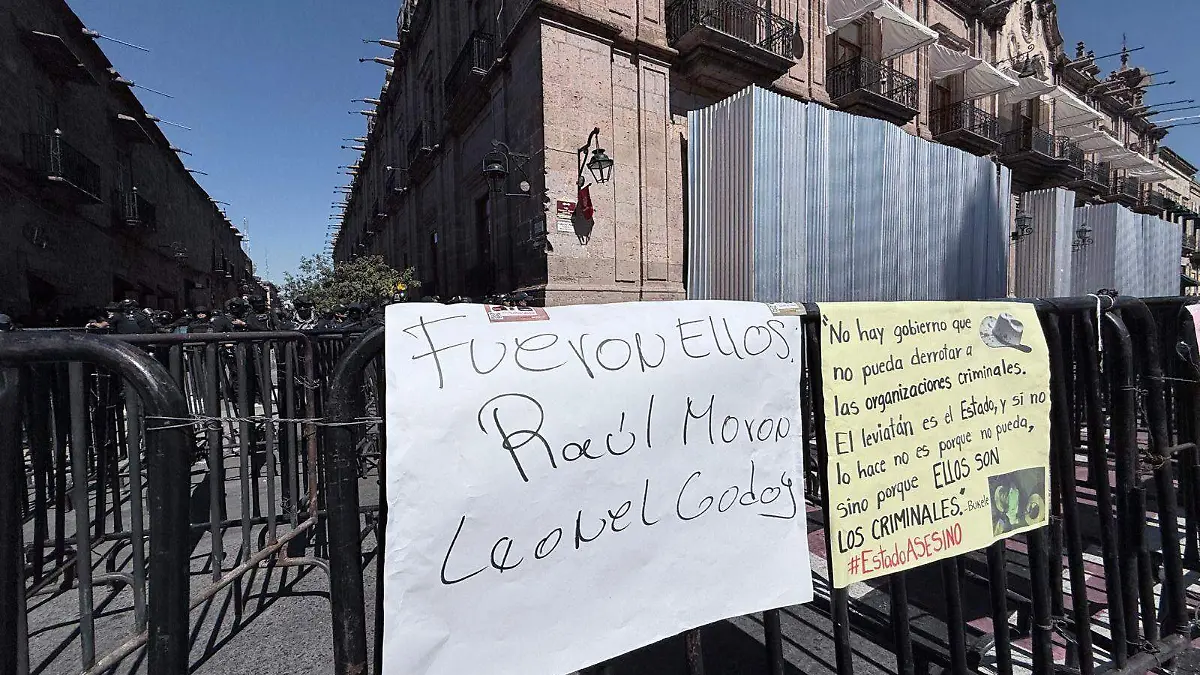 Fueron Ellos.
Raúl Moron
Leonel Godoy
"No hay gobierno que
no pueda derrotar a
las organizaciones criminales.
El leviatán es el Estado, y si no
lo hace no es porque no pueda,
sino porque ELLOS SON
LOS CRIMINALES."-Bukele
#EstadoASESINO